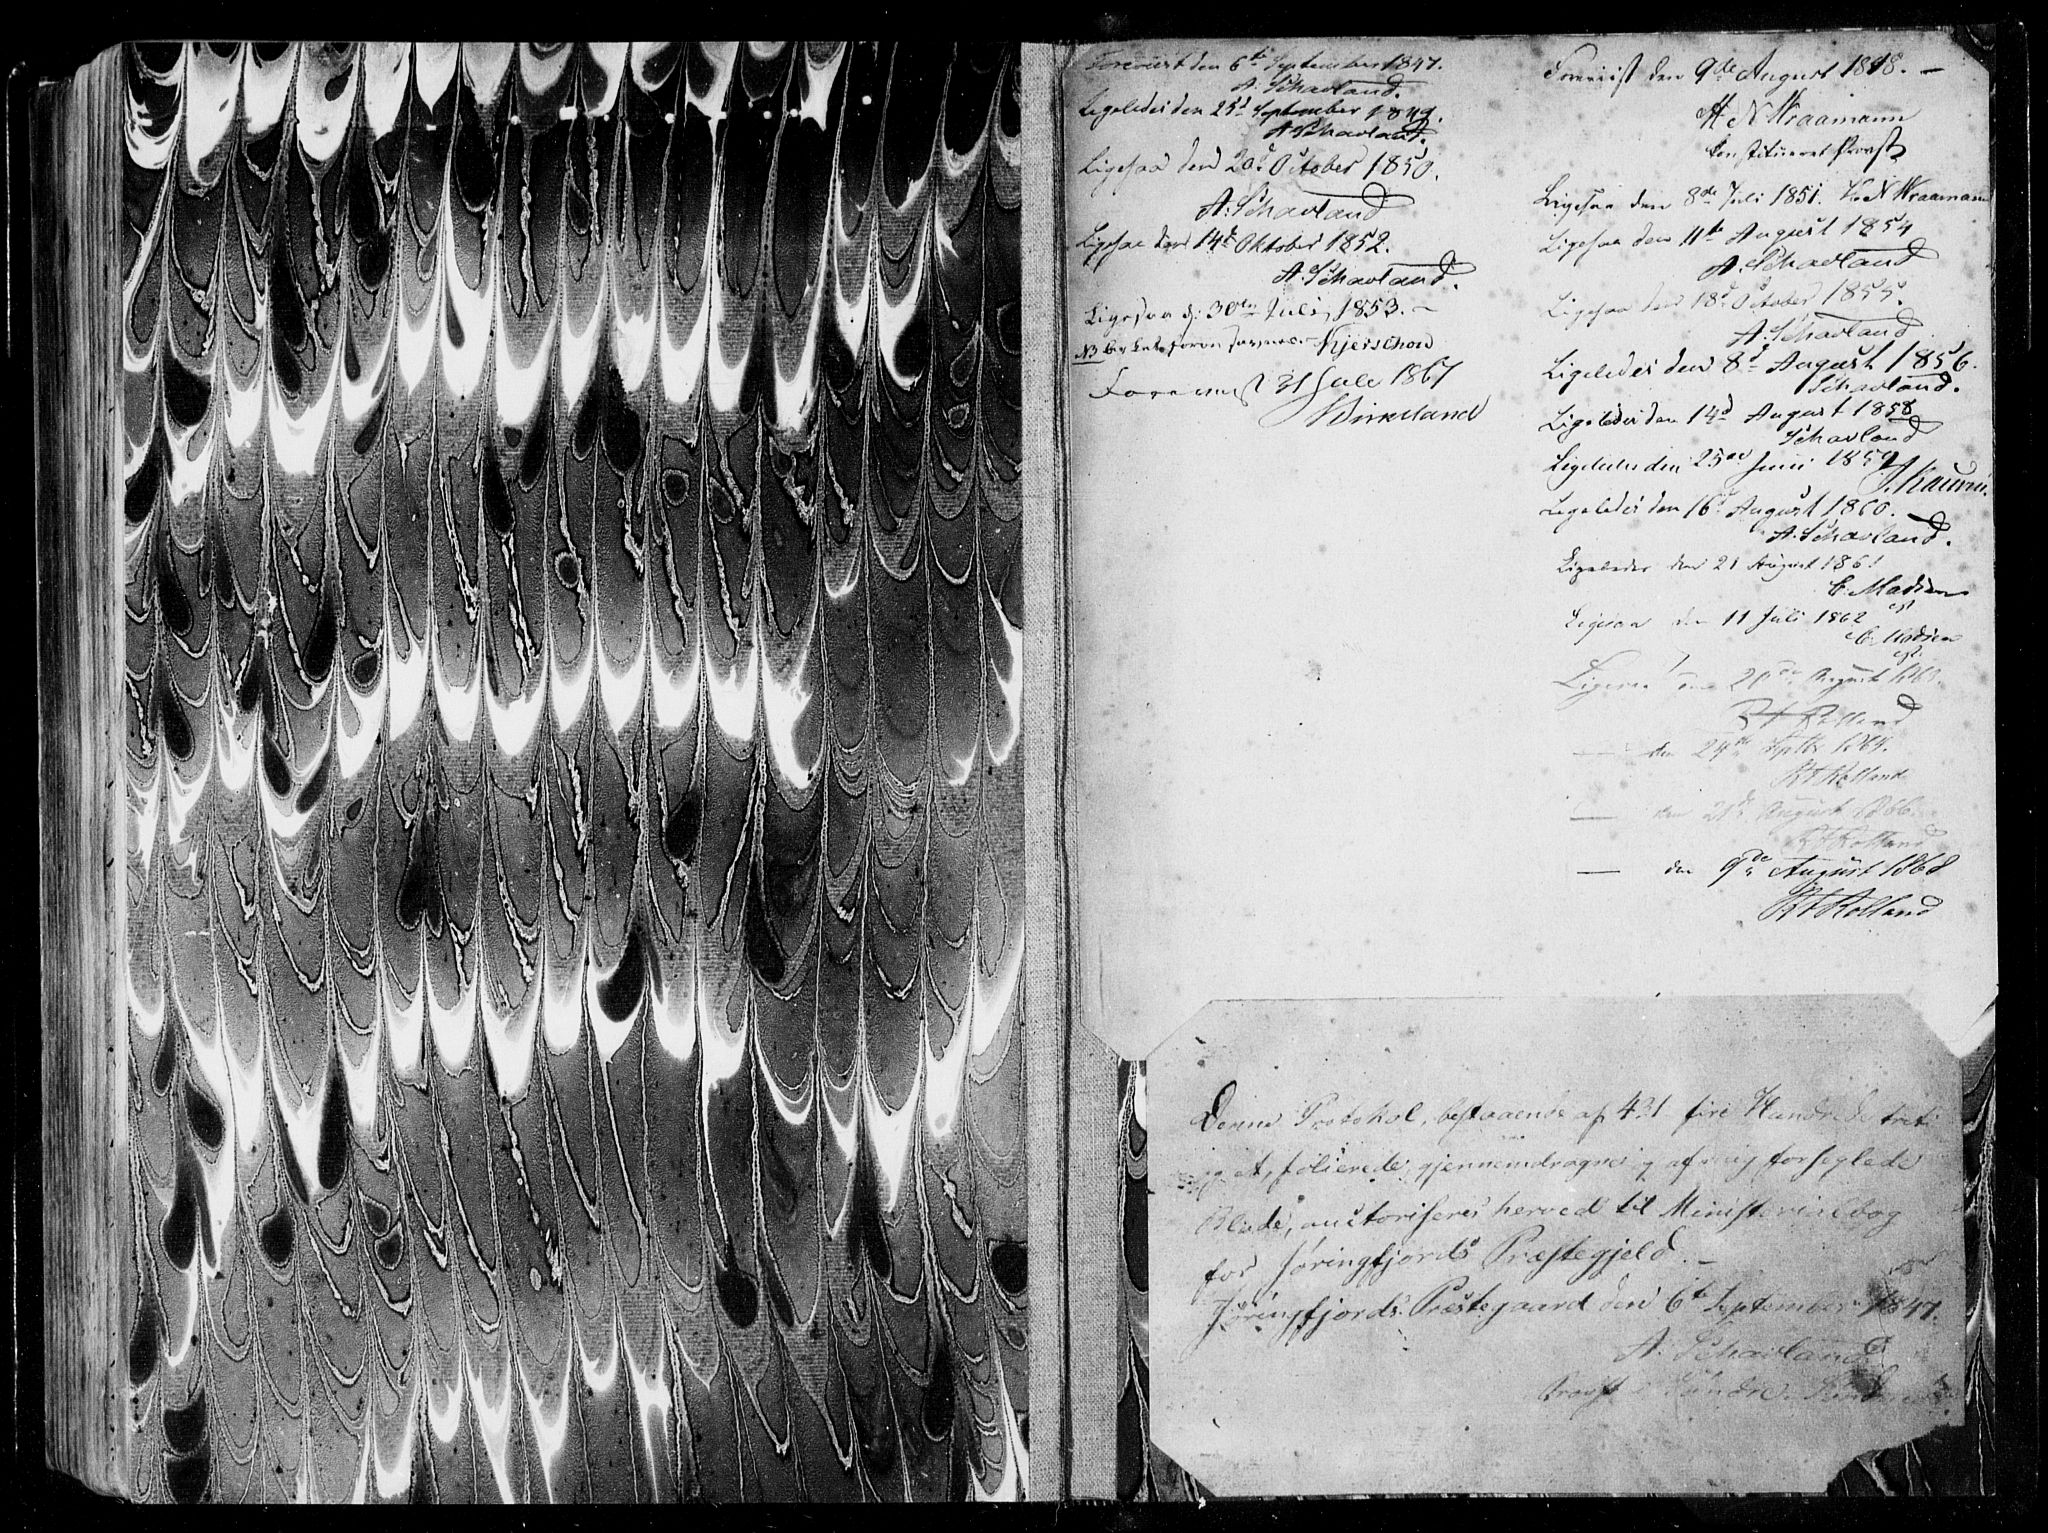 Foreviist den 6te September 1847.
A. Schavland.
Ligeledes den 25d September 1849.
A. Schavland.
Ligesaa den 20d October 1850.
A. Schavland
Ligesaa den 14d Oktober 1852.
A. Schavland.
Ligesaa d: 30te Juli, 1853. –
NB Kjerschow
Foreviist 31 Juli 1867
Birkeland
Foreviist den 9de August 1848. –
H N Wraamann
Constitueret Provst
Ligesaa den 8de Juli 1851. H. N Wraamann
Ligesaa den 11te August 1854
A. Schavland
Ligesaa den 18d October 1855.
A. Schavland
Ligeledes den 8d August 1856.
Schavland.
Ligeledes den 14d August 1858
Schavland
Ligeledes den 25de Juni 1859
J. Kaurin.
Ligeledes den 16d August 1860.
A. Schavland.
Ligeledes den 21 August 1861
C. Madsen
cst
Ligesaa den 11 Juli 1862
C. Madsen
cst.
Ligesaa den 20de August 1863.
R F Rolland
— den 24de Septbr 1864.
R F Rolland
— den 21de August 1866.
R F Rolland
— den 9de August 1868
R F Rolland
Denne Protokol, bestaaende af 431 fire Hundrede treti
og et, folierede, gjennemdragne og af mig forseglede
Blade, auctoriseres herved til Ministerialbog
for Jøringfjords Præstegjeld. –
Jøringfjords Præstegaard den 6te September 1847.
A. Schavland
Provst i Søndre